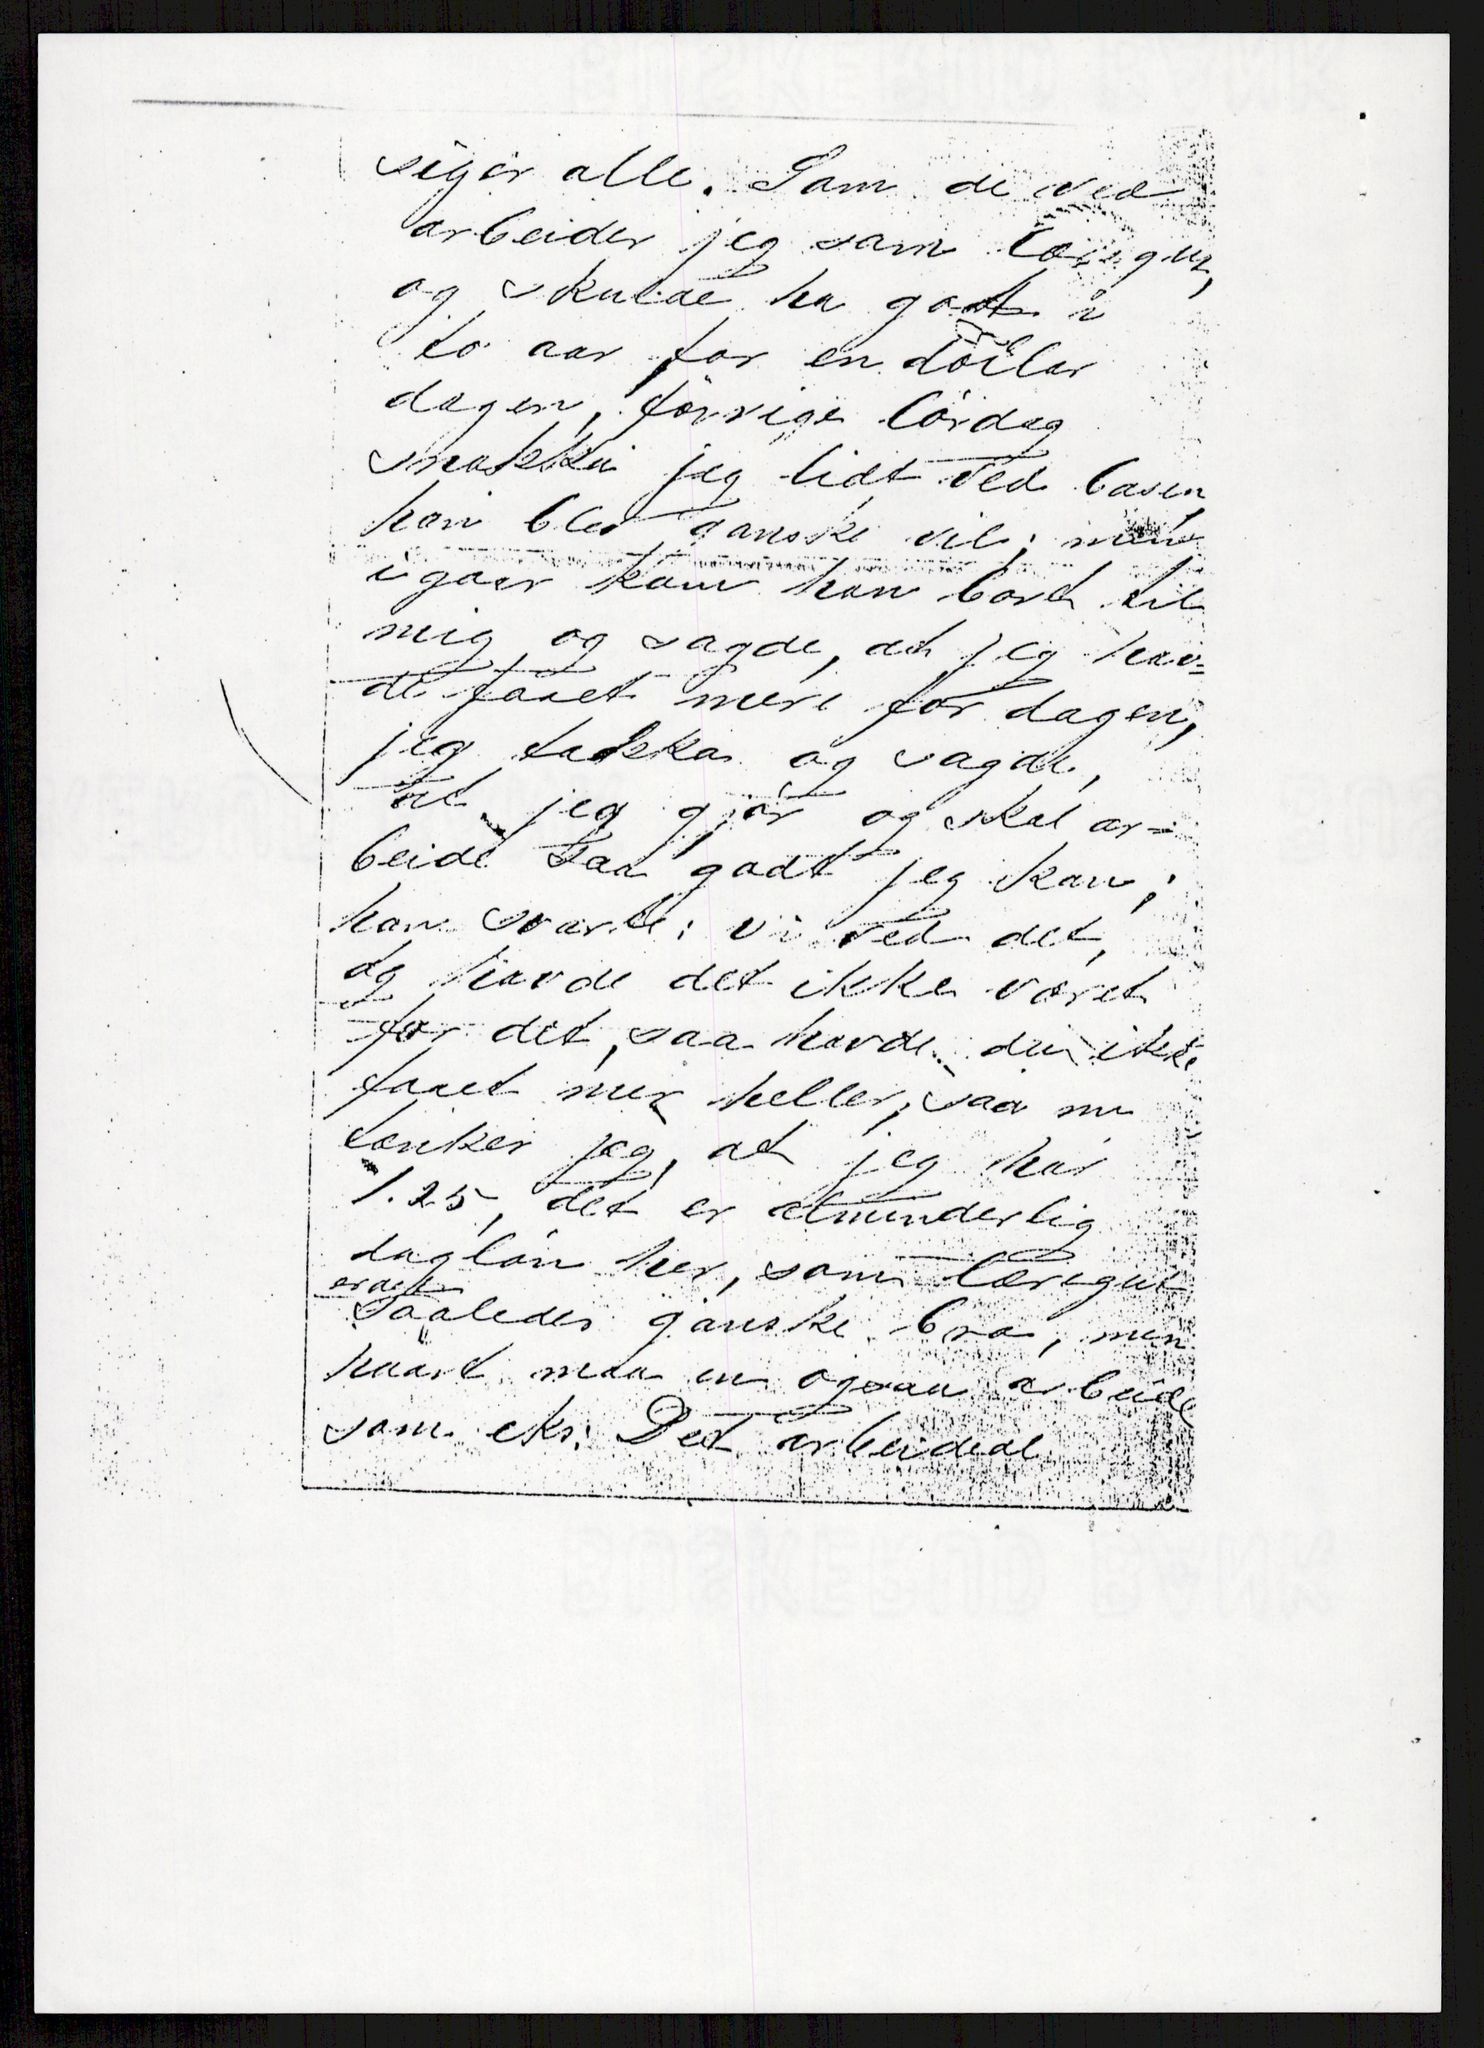 siger alle. Som de ved
arbeider jeg som læregut,
og skulde ha gaat i
to aar for en dollar
dagen, forrige lördag
snakka jeg lidt ved basen
han blev ganske vil; men
igaar kom han bort til
mig og sagde, at jeg hav-
de faaet mere for dagen,
jeg takka og sagde,
at jeg gjör og skal ar-
beide saa godt jeg kan;
han svarte: vi ved det,
og havde det ikke været
for det, saa havde du ikke
faaet mer heller, saa nu
tænker jeg, at jeg har
1.25, det er alminderlig
daglön her, som læregut
er det
saaledes ganske bra, men
haart maa en ogsaa arbeide
som eks: Det arbeide